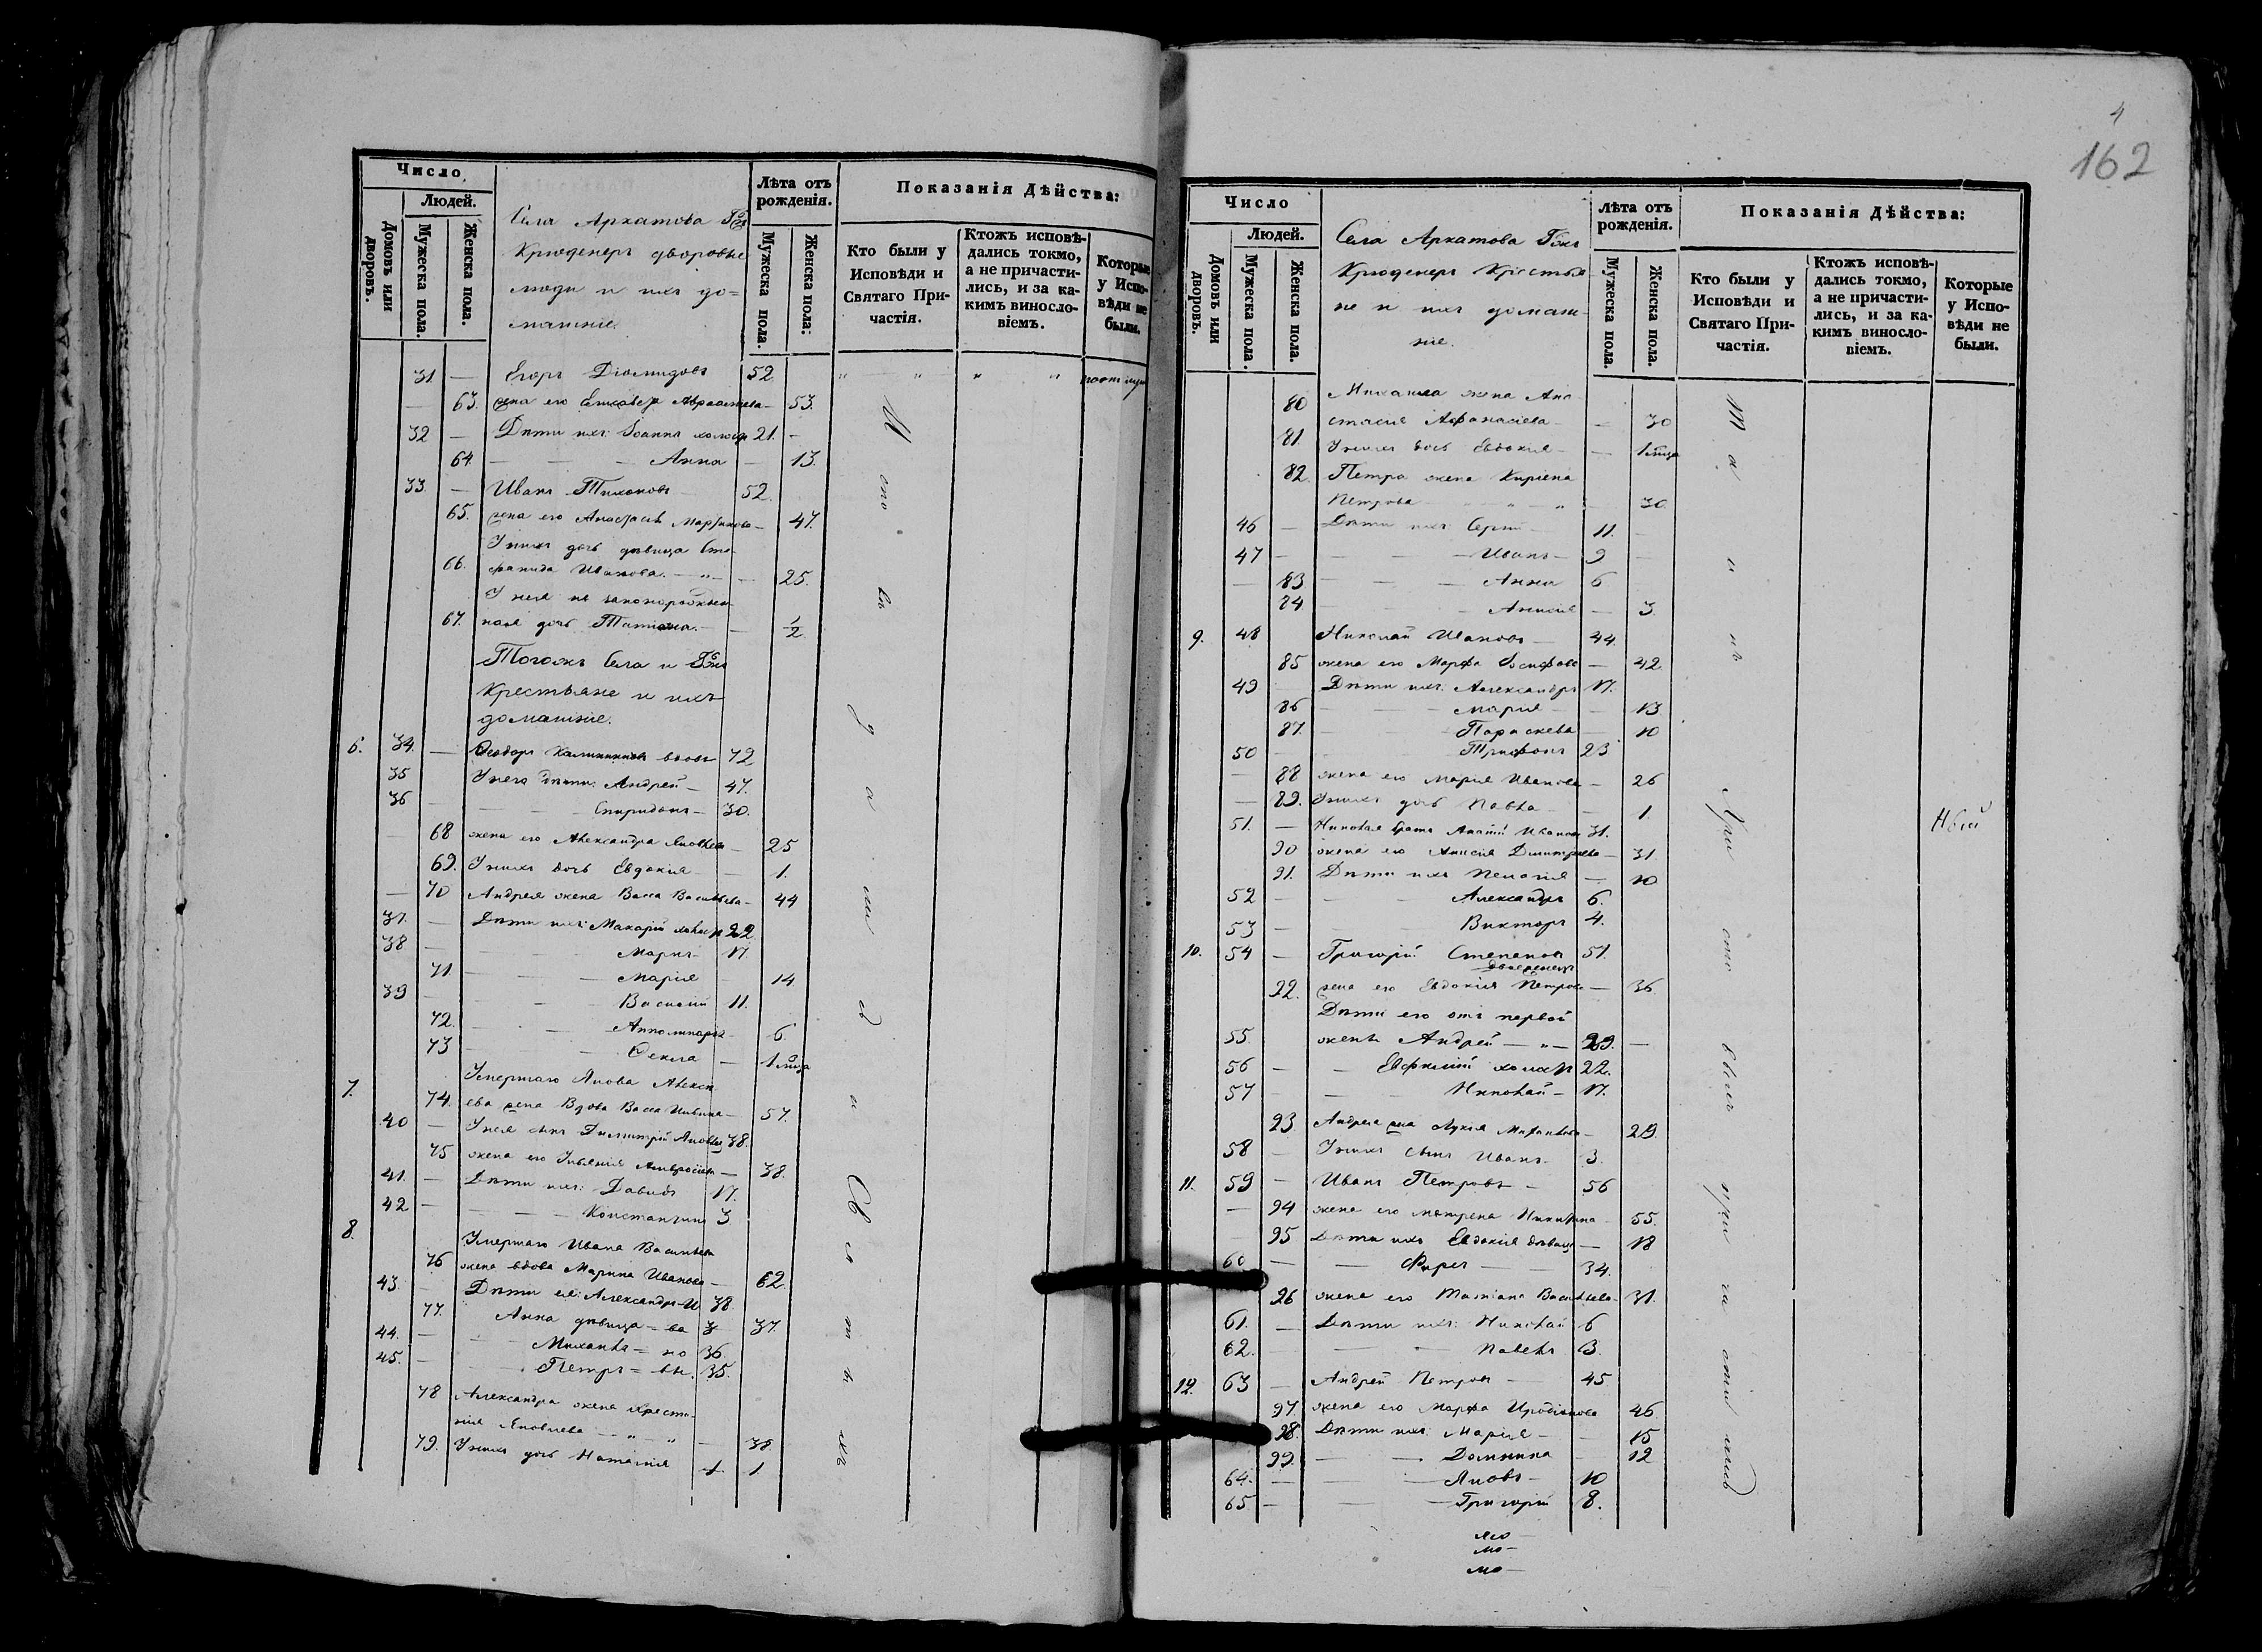 Число
Людей.
Домовъ или дворовъ.
Мужеска пола.
Женска пола.
Села Архатова Гжи
Крюденеръ дворовые
люди и ихъ до=
машніе
Лѣта отъ рожденія.
Мужеска пола.
Женска пола:
Показанія Дѣйства:
Кто были у Исповѣди и Святаго Причастія.
Ктожъ исповѣдались токмо, а не причастились, и за какимъ винословіемъ.
Которые у Исповѣди не были.
31. — Егоръ Діомидовъ 52
63. жена его Елисавета — 53.
32 — Дѣти ихъ: Іоаннъ холост 21. —
64. — — Анна — 13.
33. — Иванъ Тихоновъ 52.
65. жена его Анастасія Мартинова — 47.
У нихъ дочь дѣвица Сте-
66. фанида Иванова. — „ — 25.
У нея не законорожден-
67. ная дочь Татіана. — 1/2
Тогожъ Села и Гжи
Крестьяне и ихъ
домашніе.
6. 34. — Ѳеодоръ Калинниковъ вдовъ 72
35 У него дѣти: Андрей — 47.
36 — — Спиридонъ — 30.
68 жена его Александра Яковлева — 25
69. У нихъ дочь Евдокия — 1.
— 70 Андрея жена Васса Васильева — 44
37. — Дѣти ихъ: Макарій холост 22
38 — — Маркъ — 17
71. — — Марія 14
39 — — Василій 11.
72. — — 6.
73 — — Ѳекла — 1 мѣсяца
7. Умершаго Якова Алексѣ-
74. ева жена Вдова Васса — 57.
40 — У нея сынъ Димитрій Яковлев 38.
75 жена его Ульянія Амвросіева — 38.
41. — Дѣти ихъ: Давидъ 17.
42 — — — Константинъ 3
8. Умершаго Ивана Васильева
76 жена вдова Марина Иванова — 62.
43. Дѣти ея: Александръ-И 38
77. Анна дѣвица = ва 37.
44. — — Михаилъ = но 36.
45. — — Петръ = вы. 35.
78 Александра жена Христи-
нія Яковлева — „ — „ — 38
79. У нихъ дочь Наталія 1.
Исповѣдашася Святыхъ
4
162
Число
Людей.
Домовъ или дворовъ.
Мужеска пола.
Женска пола.
Села Архатова Гжи
Крюденеръ Крестья-
не и ихъ домаш-
ніе.
Лѣта отъ рожденія.
Мужеска пола.
Женска пола.
Показанія Дѣйства:
Кто были у Исповѣди и Святаго Причастія.
Ктожъ исповѣдались токмо, а не причастились, и за какимъ винословіемъ.
Которые у Исповѣди не были.
80 Михаила жена Ана-
стасія Афанасіева — 30
81. У нихъ дочь Евдокия — 1 мѣсяца
82. Петра жена
Петрова — „ — „ 30.
46 — Дѣти ихъ: Сергій — 11. —
47 — — — Иванъ — 9
— 83 — — — Анна 6
84. — — Анисія — 3.
9. 48 Николай Ивановъ — 44.
85 жена его Марфа Іосифова — 42.
49 Дѣти ихъ: Александръ 17.
86 — — Марія — 13
87. — — Параскева — 10
50 — — Трифонъ 23
— 88 жена его Марія Иванова — 26
— 89. У нихъ дочь Павла — 1.
51. — Николая братъ Иванов 31.
90 жена его Анисія Димитріева — 31.
91. Дѣти ихъ Пелагія — 10
52 — — Александръ 6.
53 — — Викторъ 4.
10. 54 — Григорій Степановъ 51.
двоеженецъ
92. жена его Евдокія Петрова — 36.
Дѣти его отъ первой
55. жены Андрей — „ — 29. —
56 — — Евфимій холост 22.
57 — — — Николай — 17.
93 Андрея жена Лукія — 29.
58 — У нихъ сынъ Иванъ — 3.
11. 59 — Иванъ Петровъ — 56
— 94 жена его Матрена Никитина — 55.
95 Дѣти ихъ Евдокія дѣвица — 18
60 — — Фирсъ — — 34.
96 жена его Татіана Васильева — 31.
61. — Дѣти ихъ: Николай 6
62. — — Павелъ 3.
12. 63 — Андрей Петровъ — 45
97. жена его Марфа Иродіонова 46.
98. Дѣти ихъ: Марія — — 15
99. — — Домника — 12
64. — — Яковъ — 10
65 — — — Григорій 8.
Таинъ Христовыхъ пріча